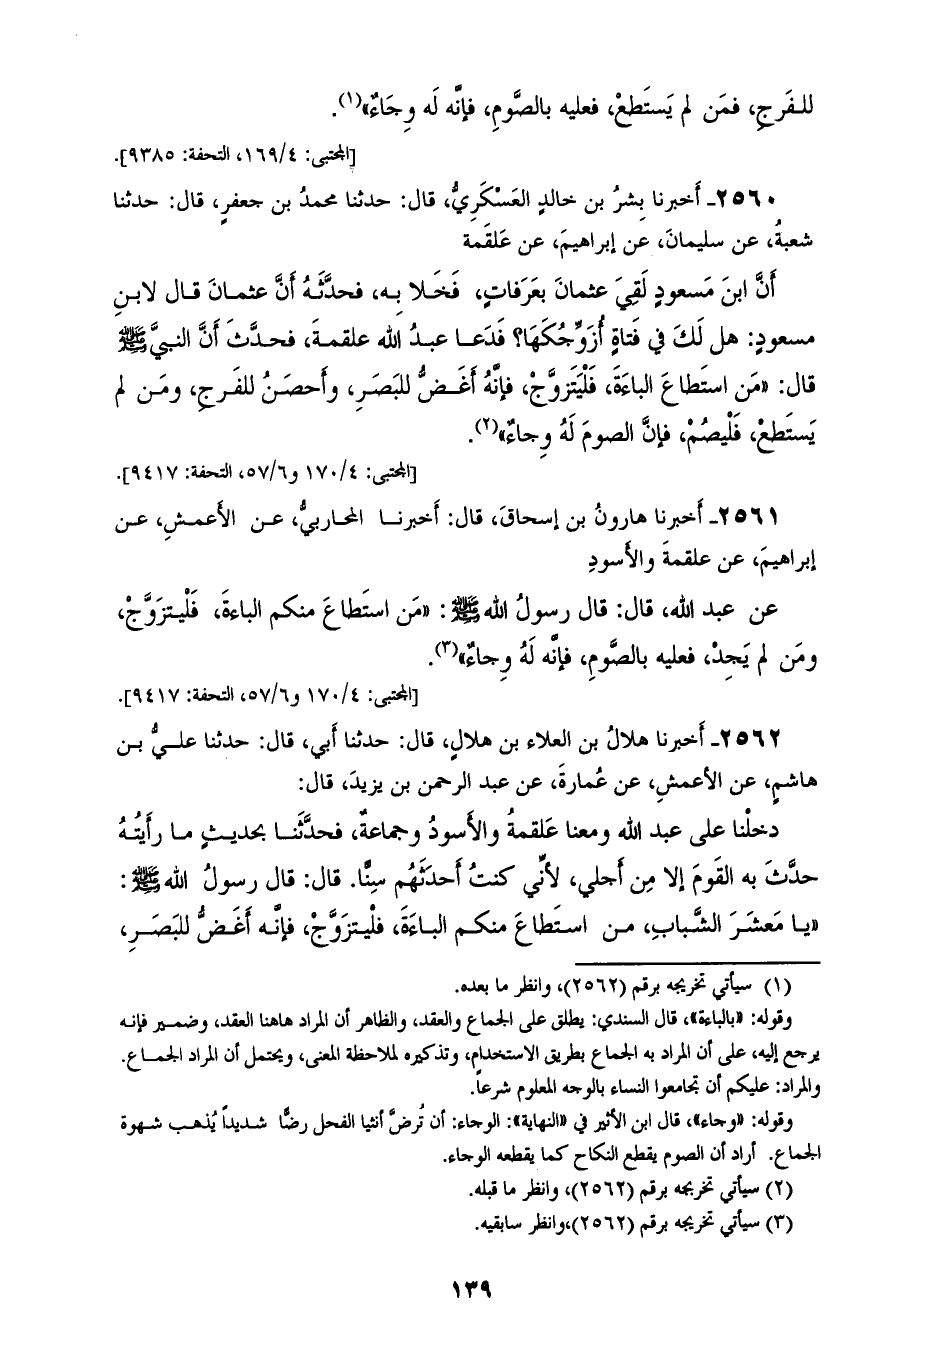 للفَرجِ، فمَن لم يَستَطعْ، فعليه بالصَّومِ، فإنَّه لَه وِجَاءٌ»(١).
[المجتبى: ١٦٩/٤، التحفة: ٩٣٨٥].
٢٥٦٠ـ أَخبرنا بِشرُ بن خالدٍ العَسْكَرِيُّ، قال: حدثنا محمدُ بن جعفرٍ، قال: حدثنا
شعبةُ، عن سليمانَ، عن إبراهيمَ، عن عَلقَمة
أَنَّ ابنَ مَسعودٍ لَقِيَ عثمانَ بعَرَفاتٍ، فَخَلا بِه، فحدَّثَهُ أَنَّ عثمـانَ قـال لابـنِ
مسعودٍ: هل لَكَ في فَتاةٍ أُزَوِّجُكَهَا؟ فَدَعـا عبـدُ الله علقمـةَ، فحـدَّثَ أَنَّ النبيَّ ﷺ
قال: «مَن استَطاعَ الباءَةَ، فَلْيَتزوَّجْ، فإنَّهُ أَغَـضُّ للبَصَرِ، وأَحصَنُ للفَـرجِ، ومَـن لم
يَستَطعْ، فَلْيصُمْ، فإنَّ الصومَ لَهُ وِجاءٌ»(٢).
[المجتبى: ١٧٠/٤ و٥٧/٦، التحفة: ٩٤١٧].
٢٥٦١ـ أَخبرنا هارونُ بن إسحاقَ، قال: أخبرنـا المحاربيُّ، عـن الأَعمـشِ، عـن
إبراهيمَ، عن علقمةَ والأَسودِ
عن عبد الله، قال: قال رسولُ الله ﷺ: «مَن استَطاعَ منكم الباءةَ، فَلْيـتزَوَّجْ،
ومَن لم يَجِدْ، فعليه بالصَّومِ، فإنَّه لَهُ وِجاءٌ»(٣).
[المجتبى: ١٧٠/٤ و٥٧/٦، التحفة: ٩٤١٧].
٢٥٦٢ـ أَخبرنا هلالُ بن العلاء بن هلالٍ، قال: حدثنا أَبي، قال: حدثنا علـيُّ بـن
هاشمٍ، عن الأعمشِ، عن عُمارةَ، عن عبد الرحمن بن يزيدَ، قال:
دخلْنا على عبد الله ومعنا عَلقمةُ والأَسودُ وجماعةٌ، فحدَّثَنـا بحديـثٍ مـا رأَيتُـهُ
حدَّثَ به القَومَ إلا مِن أَجلي، لأَنِّي كنتُ أَحدَثَهُم سِنًّا. قال: قال رسولُ الله ﷺ:
«يـا مَعشَـرَ الشَّبابِ، مـن استَطاعَ منكـم البـاءَةَ، فلْيـتزوَّجْ، فإنَّـه أَغَـضُّ للبَصَـرِ،
(١) سيأتي تخريجه برقم (٢٥٦٢)، وانظر ما بعده.
وقوله: «بالباءة»، قال السندي: يطلق على الجماع والعقد، والظاهر أن المراد هاهنا العقد، وضمـير فإنـه
يرجع إليه، على أن المراد به الجماع بطريق الاستخدام، وتذكيره لملاحظة المعنى، ويحتمل أن المراد الجمـاع.
والمراد: عليكم أن تجامعوا النساء بالوجه المعلوم شرعاً.
وقوله: «وجاء»، قال ابن الأثير في «النهاية»: الوجاء: أن تُرضَّ أنثيا الفحل رضًّا شديداً يُذهـب شـهوة
الجماع. أراد أن الصوم يقطع النكاح كما يقطعه الوجاء.
(٢) سيأتي تخريجه برقم (٢٥٦٢)، وانظر ما قبله.
(٣) سيأتي تخريجه برقم (٢٥٦٢)،وانظر سابقيه.
١٣٩